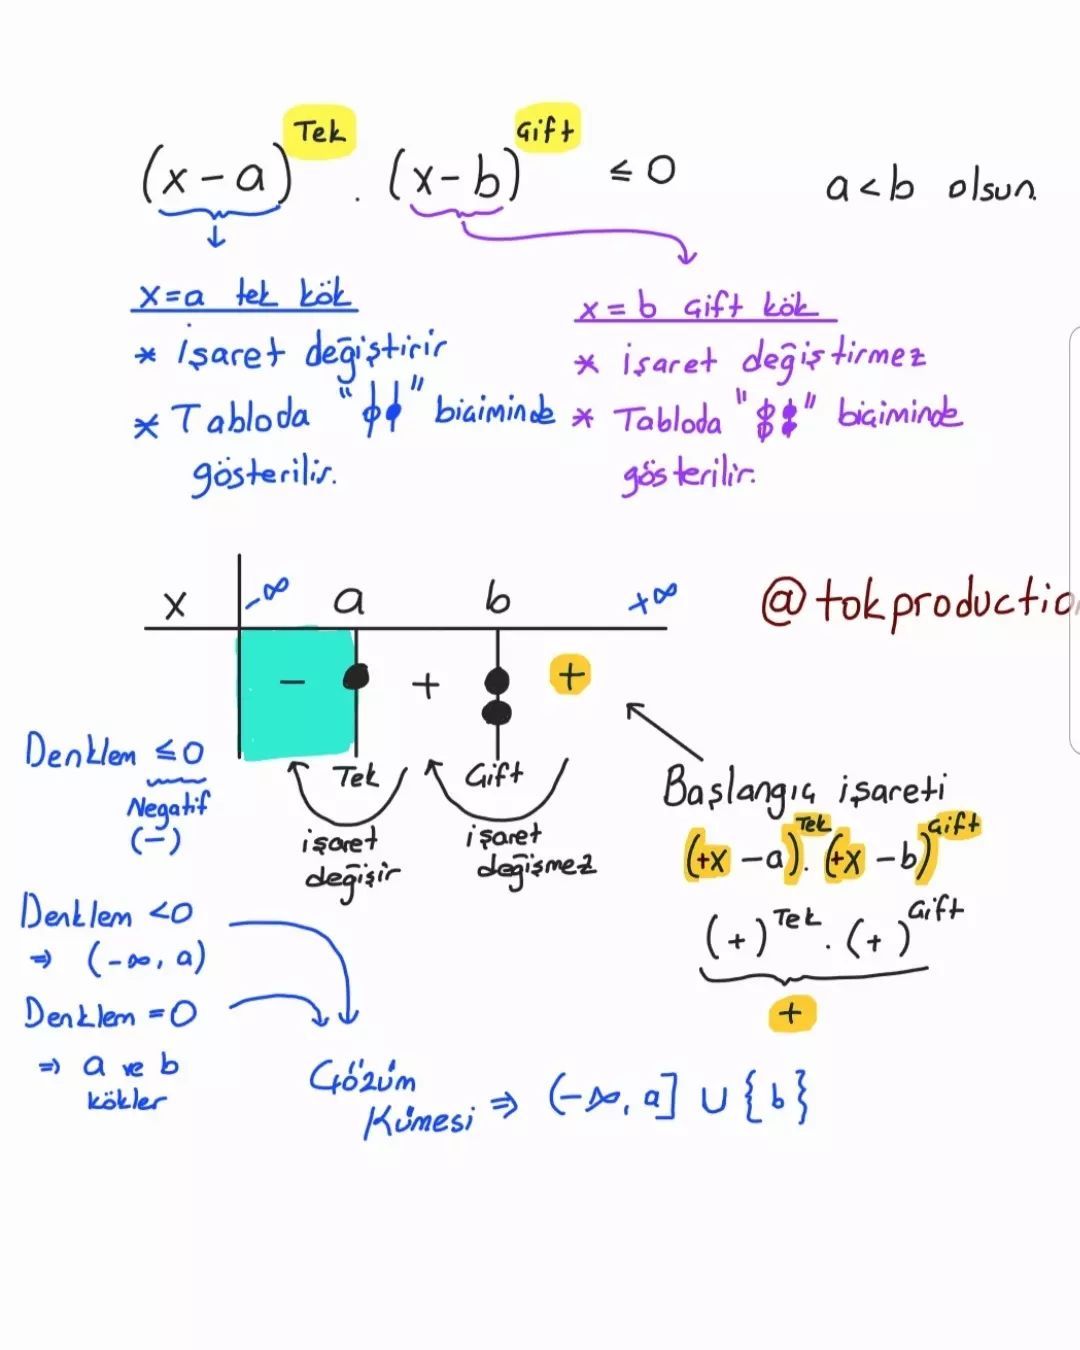 (x-a)^Tek . (x-b)^Çift ≤ 0
a<b olsun.
x=a tek kök
* işaret değiştirir
* Tabloda " " biçiminde
gösterilir.
x=b Çift kök
* işaret değiştirmez
* Tabloda " " biçiminde
gösterilir.
x -∞ a b +∞
- + +
Tek Çift
işaret
değişir
işaret
değişmez
@tokproductio
Denklem ≤0
Negatif
(-)
Denklem <0
⇒ (-∞, a)
Denklem =0
⇒ a ve b
kökler
Başlangıç işareti
(+x -a)^Tek . (+x -b)^Çift
(+)^Tek . (+)^Çift
+
Çözüm
Kümesi ⇒ (-∞, a] ∪ {b}